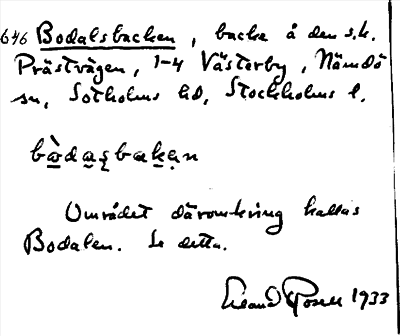 646 Bodalsbacken, backe å den s.k.
Prästvägen, 1-4 Västerby, Nämdö
sn, Sotholms hd, Stockholms l.
Området däromkring kallas
Bodalen. Se detta.
1933